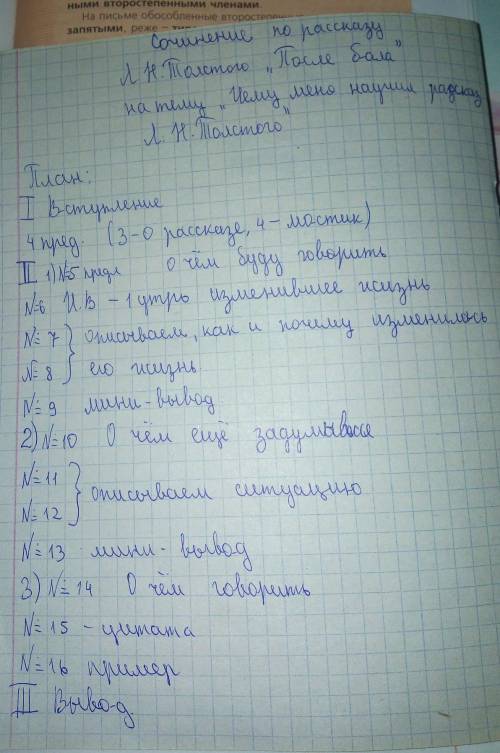 ными второстепенными членами.
На письме обособленные второстепенные
запятыми, реже –
Сочинение по рассказу
Л.Н.Толстого „После бала"
на тему „Чему меня научил рассказ
Л.Н.Толстого"
План:
I Вступление
4 пред. (3-О рассказе, 4-мостик)
II 1) №5 предл О чём буду говорить
№6 И.В – 1 утро изменившее жизнь
№7 } описываем, как и почему изменилось
№8 } его жизнь
№9 мини-вывод
2) №10 О чём ещё
№11 } описываем ситуацию
№12
№13 мини-вывод
3) №14 О чём говорить
№15 – цитата
№16 пример
III Вывод